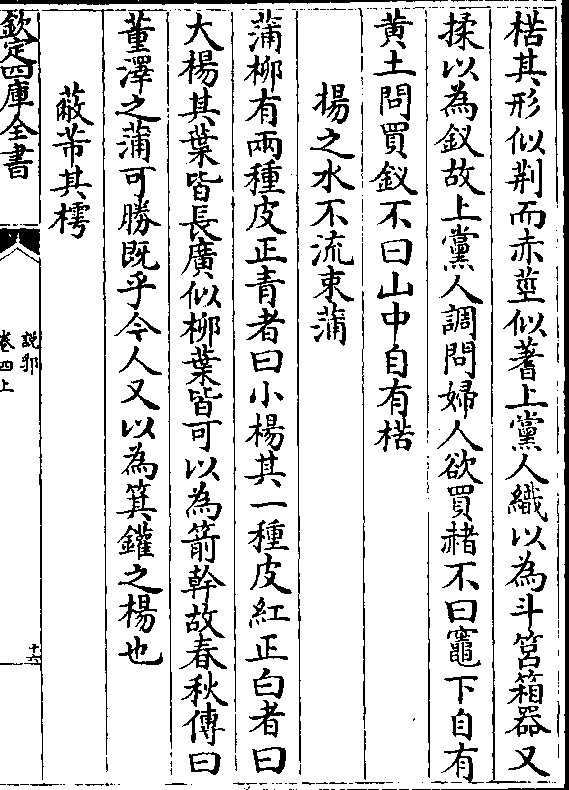 楛其形似荆而赤莖似蓍上黨人織以為斗筥箱器又
揉以為釵故上黨人調問婦人欲買赭不曰竈下自有
黄土問買釵不曰山中自有楛
揚之水不流束蒲
蒲柳有兩種皮正青者曰小楊其一種皮紅正白者曰
大楊其葉皆長廣似柳葉皆可以為箭幹故春秋傳曰
董澤之蒲可勝既乎今人又以為箕鑵之楊也
蔽芾其樗
欽定四庫全書
說郛
卷四上
十六